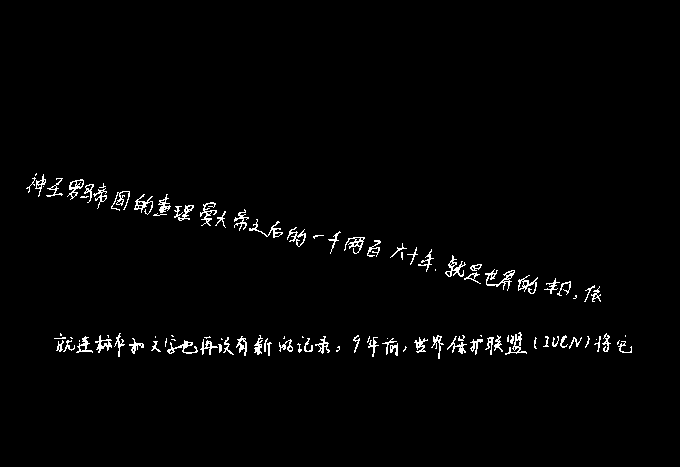 神圣罗马帝国的查理曼大帝之后的一千两百六十年.就是世界的末日。依
就连标本和文字也再没有新的记录。9年前,世界保护联盟(IUCN)将它